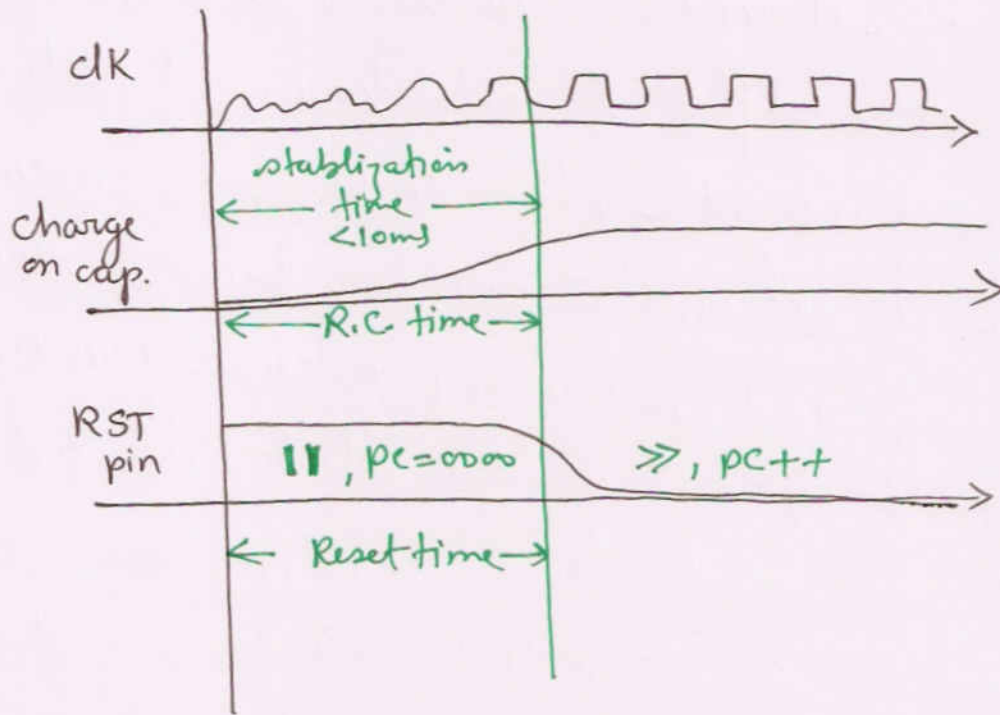 clK
stablization
time
<10ms
charge
on cap.
R.C. time
RST
pin
, pc=0000
>>, pc++
Reset time